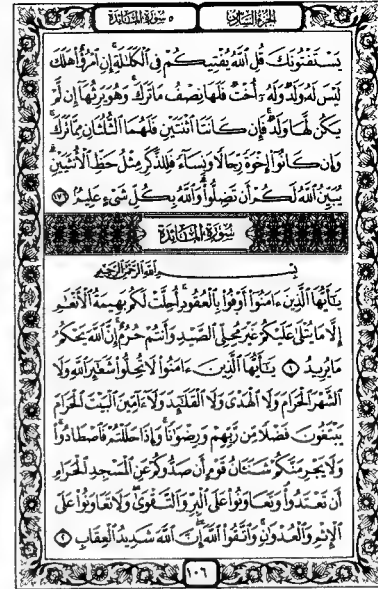 الجزء السادس ٥ سورة المائدة
يَسْتَفْتُونَكَ قُلِ ٱللَّهُ يُفْتِيكُمْ فِى ٱلْكَلَـٰلَةِ إِنِ ٱمْرُؤٌا۟ هَلَكَ
لَيْسَ لَهُۥ وَلَدٌ وَلَهُۥٓ أُخْتٌ فَلَهَا نِصْفُ مَا تَرَكَ وَهُوَ يَرِثُهَآ إِن لَّمْ
يَكُن لَّهَا وَلَدٌ فَإِن كَانَتَا ٱثْنَتَيْنِ فَلَهُمَا ٱلثُّلُثَانِ مِمَّا تَرَكَ
وَإِن كَانُوٓا۟ إِخْوَةً رِّجَالًا وَنِسَآءً فَلِلذَّكَرِ مِثْلُ حَظِّ ٱلْأُنثَيَيْنِ
يُبَيِّنُ ٱللَّهُ لَكُمْ أَن تَضِلُّوا۟ وَٱللَّهُ بِكُلِّ شَىْءٍ عَلِيمٌۢ ١٧٦
سورة المائدة
بِسْمِ ٱللَّهِ ٱلرَّحْمَـٰنِ ٱلرَّحِيمِ
يَـٰٓأَيُّهَا ٱلَّذِينَ ءَامَنُوٓا۟ أَوْفُوا۟ بِٱلْعُقُودِ أُحِلَّتْ لَكُم بَهِيمَةُ ٱلْأَنْعَـٰمِ
إِلَّا مَا يُتْلَىٰ عَلَيْكُمْ غَيْرَ مُحِلِّى ٱلصَّيْدِ وَأَنتُمْ حُرُمٌ إِنَّ ٱللَّهَ يَحْكُمُ
مَا يُرِيدُ ١ يَـٰٓأَيُّهَا ٱلَّذِينَ ءَامَنُوا۟ لَا تُحِلُّوا۟ شَعَـٰٓئِرَ ٱللَّهِ وَلَا
ٱلشَّهْرَ ٱلْحَرَامَ وَلَا ٱلْهَدْىَ وَلَا ٱلْقَلَـٰٓئِدَ وَلَآ ءَآمِّينَ ٱلْبَيْتَ ٱلْحَرَامَ
يَبْتَغُونَ فَضْلًا مِّن رَّبِّهِمْ وَرِضْوَٰنًا وَإِذَا حَلَلْتُمْ فَٱصْطَادُوا۟
وَلَا يَجْرِمَنَّكُمْ شَنَـَٔانُ قَوْمٍ أَن صَدُّوكُمْ عَنِ ٱلْمَسْجِدِ ٱلْحَرَامِ
أَن تَعْتَدُوا۟ وَتَعَاوَنُوا۟ عَلَى ٱلْبِرِّ وَٱلتَّقْوَىٰ وَلَا تَعَاوَنُوا۟ عَلَى
ٱلْإِثْمِ وَٱلْعُدْوَٰنِ وَٱتَّقُوا۟ ٱللَّهَ إِنَّ ٱللَّهَ شَدِيدُ ٱلْعِقَابِ ٢
١٠٦